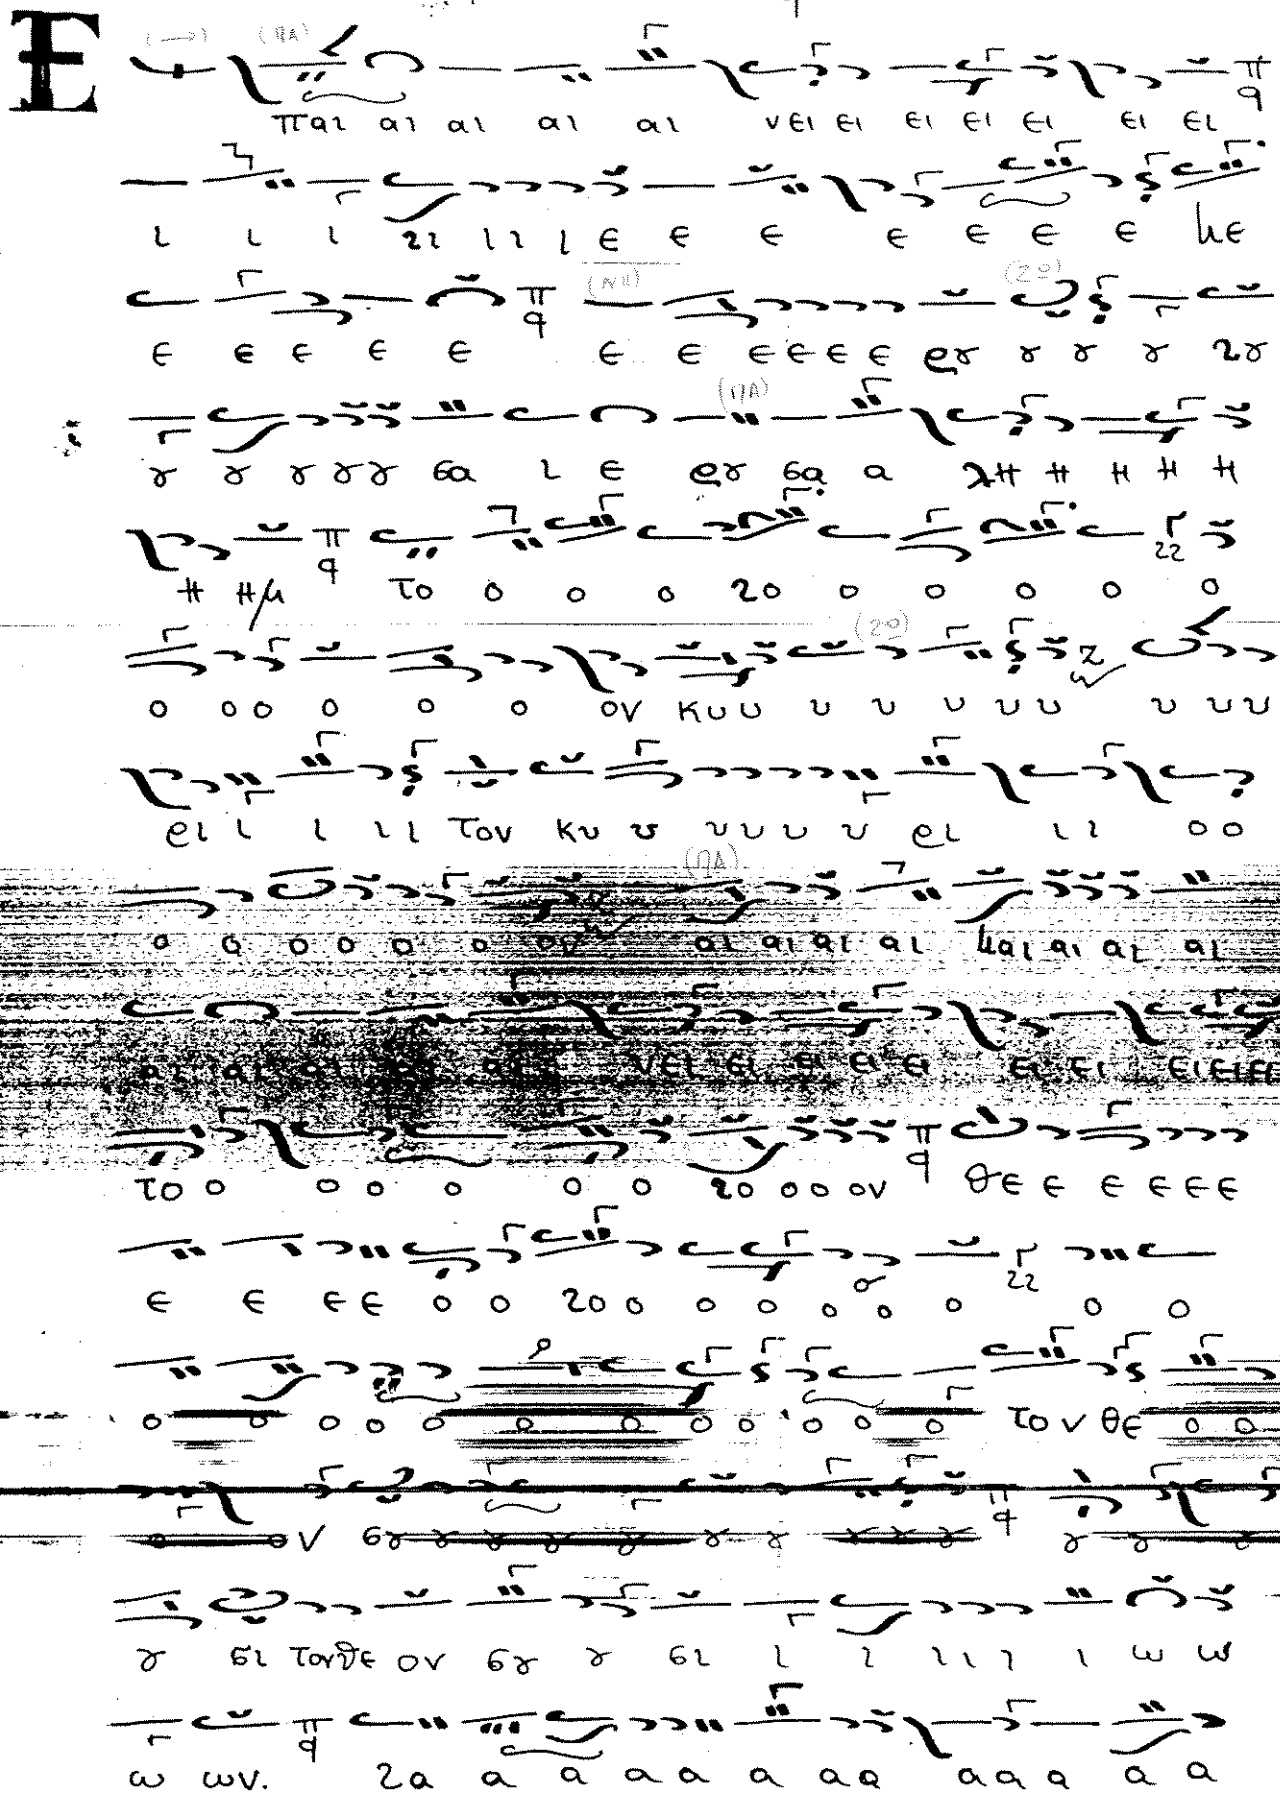 Ε (ΠΑ)
παι αι αι αι αι νει ει ει ει ει ει ει
ι ι ι χι ι ι ι ε ε ε ε ε ε ε με
(ΝΗ) (ΖΩ)
ε ε ε ε ε ε ε ε ε ε ε ρȣ ȣ ȣ ȣ χȣ
(ΠΑ)
ȣ ȣ ȣ ȣ ȣ βα ι ε ρȣ βα α λη η η η η
η ημ το ο ο ο χο ο ο ο ο ο
(ΖΩ)
ο ο ο ο ο ο ον κυ υ υ υ υ υ υ υ υ υ
ρι ι ι ι ι τον κυ υ υ υ υ υ ρι ι ι ο ο
(ΠΑ)
ο ο ο ο ο ο ον αι αι αι αι μαι αι αι αι
αι αι αι αι αι νει ει ει ει ει ει ει ει ει ει
το ο ο ο ο ο ο χο ο ο ον θε ε ε ε ε ε
ε ε ε ε ο ο χο ο ο ο ο ο ο ο ο ο
ο ο ο ο ο ο ο ο ο ο ο ο τον θε ο ο
ο ον βȣ ȣ ȣ ȣ ȣ ȣ ȣ ȣ ȣ ȣ ȣ ȣ ȣ
ȣ βι τον θε ον βȣ ȣ βι ι ι ι ι ι ι ω ω
ω ων. χα α α α α α α α α α α α α